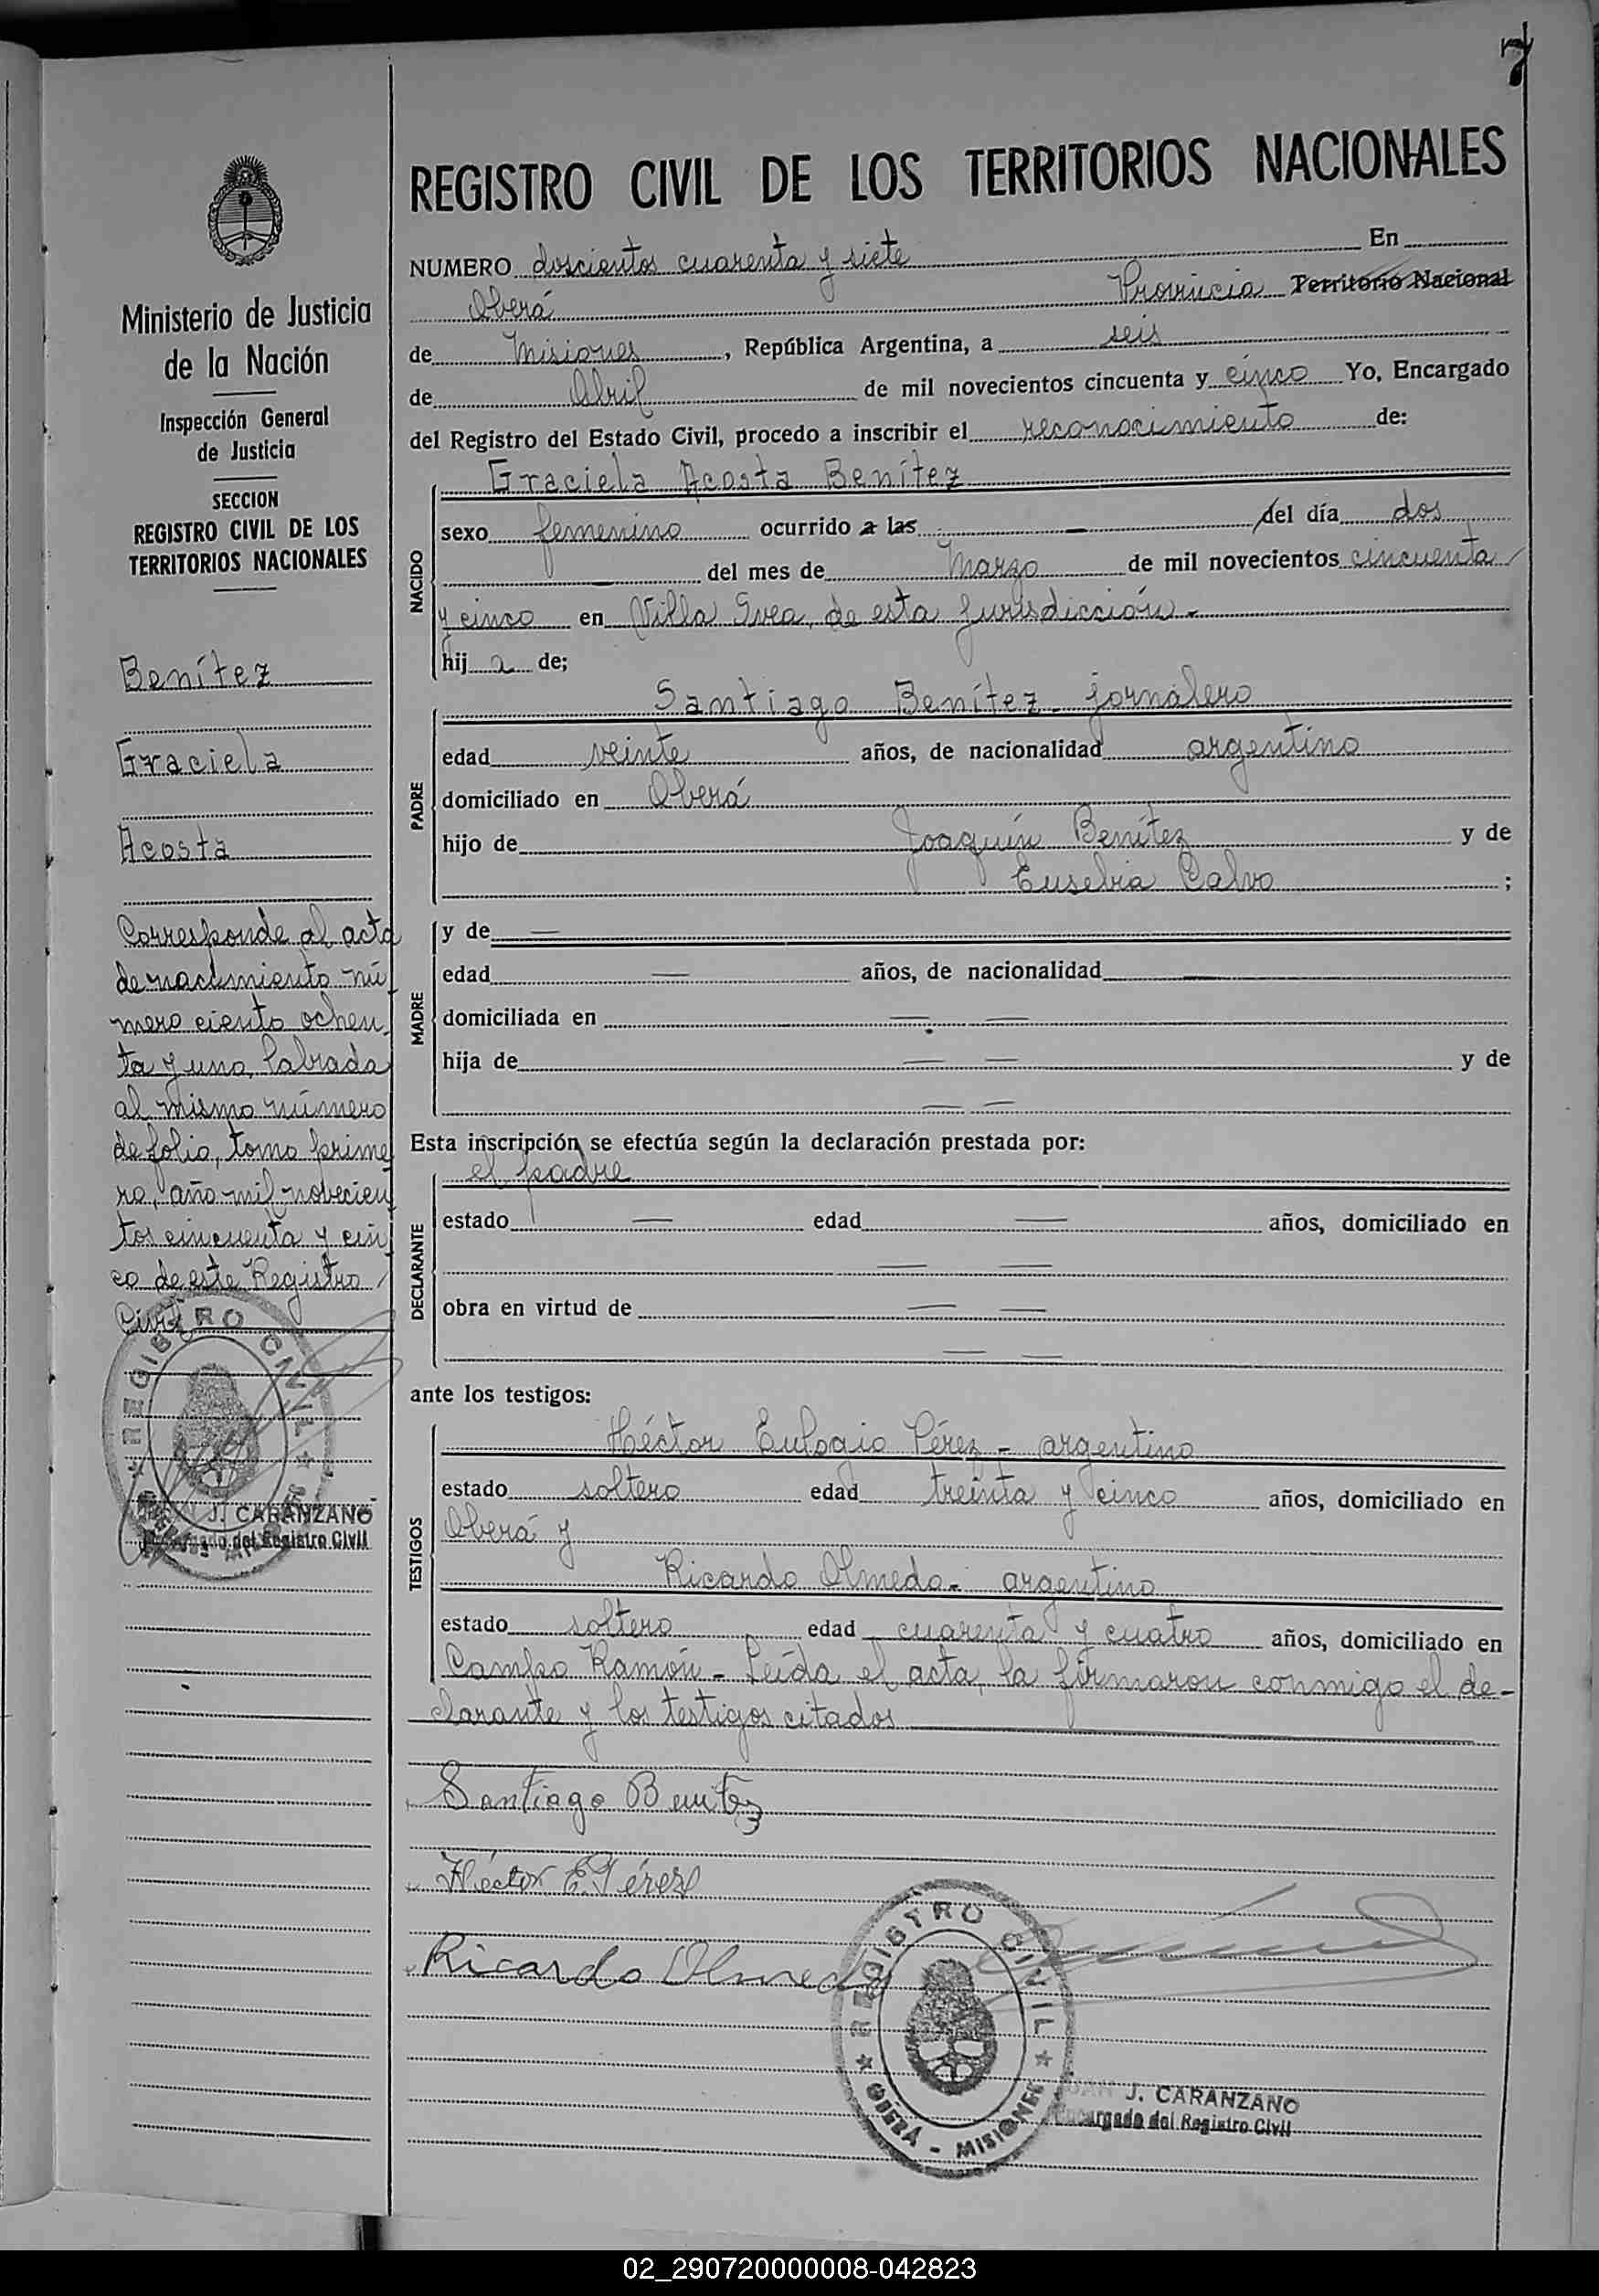 7
REGISTRO CIVIL DE LOS TERRITORIOS NACIONALES
NUMERO doscientos cuarenta y siete En
Oberá Provincia Territorio Nacional
de Misiones, República Argentina, a seis
de Abril de mil novecientos cincuenta y cinco Yo, Encargado
del Registro del Estado Civil, procedo a inscribir el reconocimiento de:
NACIDO
Graciela Acosta Benítez
sexo femenino ocurrido a las — del día dos
— del mes de Marzo de mil novecientos cincuenta
y cinco en Villa Svea, de esta jurisdicción.-
hij a de;
PADRE
Santiago Benítez - jornalero
edad veinte años, de nacionalidad argentino
domiciliado en Oberá
hijo de Joaquín Benítez y de
Eusebia Calvo ;
MADRE
y de —
edad — años, de nacionalidad —
domiciliada en — —
hija de — — y de
— —
Esta inscripción se efectúa según la declaración prestada por:
DECLARANTE
el padre
estado — edad — años, domiciliado en
— —
obra en virtud de — —
— —
ante los testigos:
TESTIGOS
Héctor Eulogio Pérez - argentino
estado soltero edad treinta y cinco años, domiciliado en
Oberá y
Ricardo Olmedo - argentino
estado soltero edad cuarenta y cuatro años, domiciliado en
Campo Ramón - Leída el acta, la firmaron conmigo el de-
clarante y los testigos citados
Santiago Benitez
Héctor E. Pérez
Ricardo Olmedo
REGISTRO CIVIL
OBERÁ - MISIONES
J. CARANZANO
Encargado del Registro Civil
Ministerio de Justicia
de la Nación
Inspección General
de Justicia
SECCION
REGISTRO CIVIL DE LOS
TERRITORIOS NACIONALES
Benítez
Graciela
Acosta
Corresponde al acta
de nacimiento nú
mero ciento ochen
ta y uno, labrada
al mismo número
de folio, tomo prime
ro, año mil novecien
tos cincuenta y cin
co de este Registro
Civil
REGISTRO CIVIL
J. CARANZANO
Encargado del Registro Civil
02_290720000008-042823